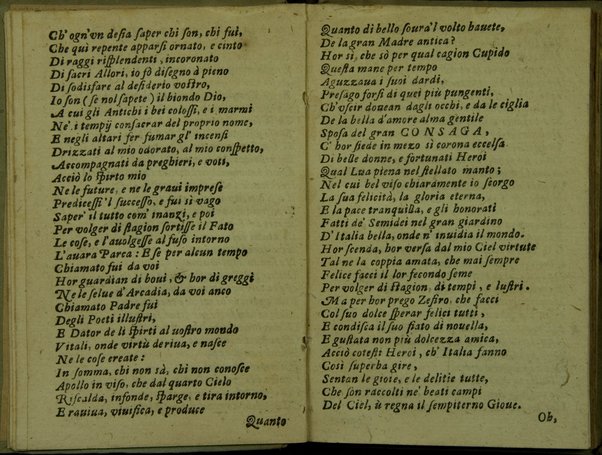 Ch'ogn'vn desia saper chi son, chi fui,
Che qui repente apparsi ornato, e cinto
Di raggi risplendenti, incoronato
Di sacri Allori, io fò disegno à pieno
Di sodisfare al desiderio vostro,
Io son (se nol sapete) il biondo Dio,
A cui gli Antichi i bei colossi, e i marmi
Ne' i tempij consacrar del proprio nome,
E negli altari fer fumar gl' incensi
Drizzati al mio odorato, al mio conspetto,
Accompagnati da preghieri, e voti,
Acciò lo spirto mio
Ne le future, e ne le graui imprese
Predicessi 'l successo, e fui sì vago
Saper' il tutto com' inanzi, e poi
Per volger di stagion sortisse il Fato
Le cose, e l'auolgesse al fuso intorno
L'auara Parca: E se per alcun tempo
Chiamato fui da voi
Hor guardian di boui, & hor di greggi
Ne le selue d'Arcadia, da voi anco
Chiamato Padre fui
Degli Poeti illustri,
E Dator de li spirti al uostro mondo
Vitali, onde virtù deriua, e nasce
Ne le cose create:
In somma, chi non sà, chi non conosce
Apollo in viso, che dal quarto Cielo
Riscalda, infonde, sparge, e tira intorno,
E rauiua, viuifica, e produce
Quanto
Quanto di bello soura'l volto hauete,
De la gran Madre antica?
Hor sì, che sò per qual cagion Cupido
Questa mane per tempo
Aguzzaua i suoi dardi,
Presago forsi di quei più pungenti,
Ch'vscir douean dagli occhi, e da le ciglia
De la bella d'amore alma gentile
Sposa del gran CONSAGA,
C' hor siede in mezo sì corona eccelsa
Di belle donne, e fortunati Heroi
Qual Lua piena nel stellato manto;
Nel cui bel viso chiardmente io scorgo
La sua felicità, la gloria eterna,
E la pace tranquilla, e gli honorati
Fatti de' Semidei nel gran giardino
D'Italia bella, onde n' inuidia il mondo.
Hor scenda, hor versa dal mio Ciel virtute
Tal ne la coppia amata, che mai sempre
Felice facci il lor fecondo seme
Per volger di stagion, di tempi, e lustri.
Ma per hor prego Zefiro, che facci
Col suo dolce sperar felici tutti,
E condisca il suo fiato di nouella,
E gustata non più dolcezza amica,
Acciò cotesti Heroi, ch' Italia fanno
Così superba gire,
Sentan le gioie, e le delitie tutte,
Che son raccolti ne' beati campi
Del Ciel, ù regna il sempiterno Gioue.
Oh,